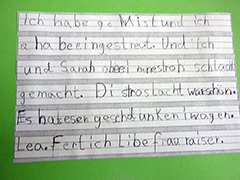 Ich habe ge Mist und ich
a ha be eingestreut. Und ich
und Sarah abeel mnestroh schlacht
gemacht. Di strostacht warschön.
Es hatesen geschdunken iwagen.
Lea. Fertich Libe frau raiser.